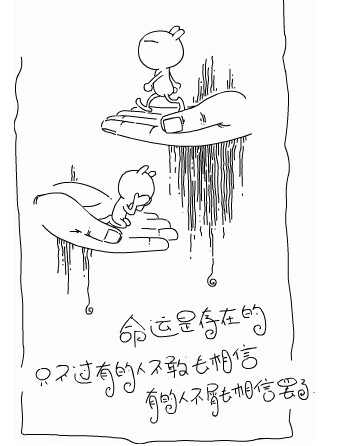 命运是存在的
只不过有的人不敢去相信
有的人不屑去相信罢了.